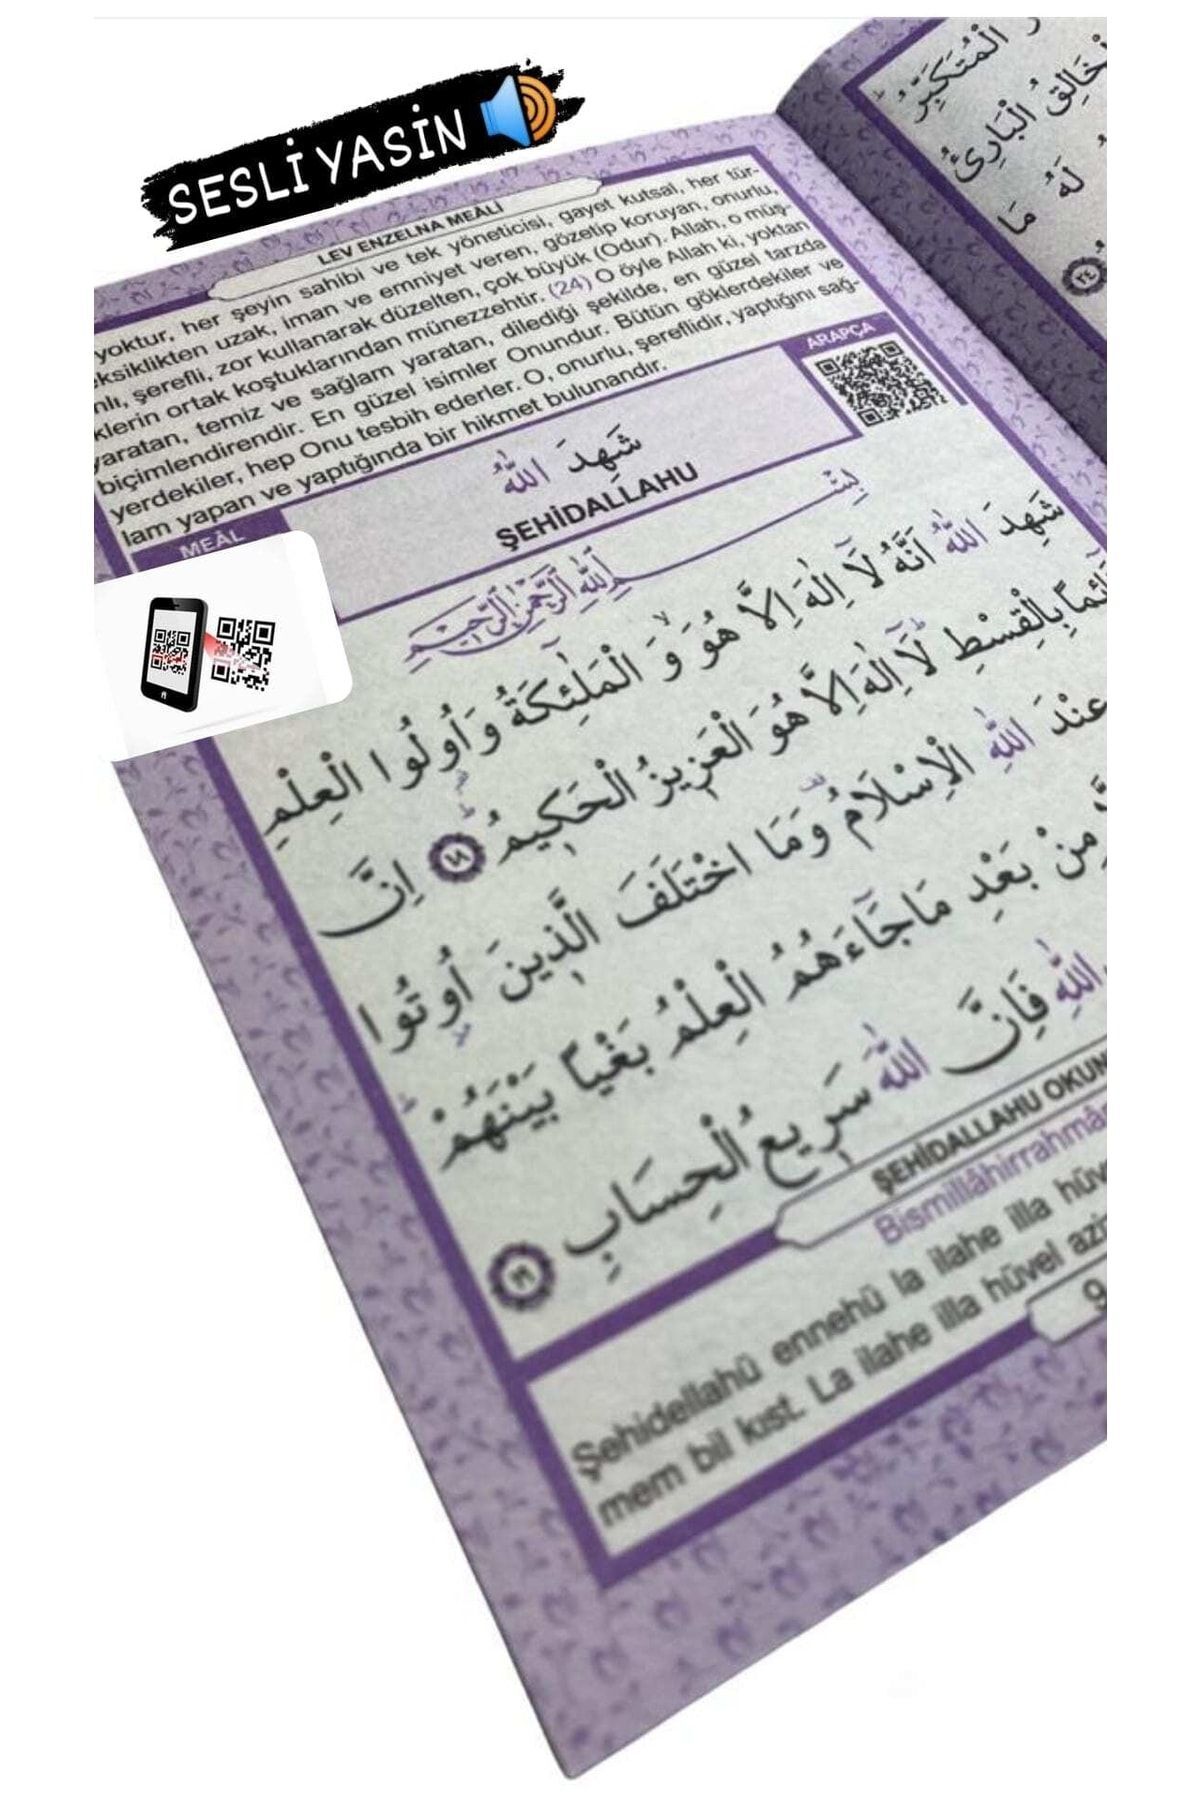 SESLİ YASİN
LEV ENZELNA MEÂLİ
yoktur, her şeyin sahibi ve tek yöneticisi, gayet kutsal, her tür-
eksiklikten uzak, iman ve emniyet veren, gözetip koruyan, onurlu,
nlı, şerefli, zor kullanarak düzelten, çok büyük (Odur). Allah, o müş-
klerin ortak koştuklarından münezzehtir. (24) O öyle Allah ki, yoktan
yaratan, temiz ve sağlam yaratan, dilediği şekilde, en güzel tarzda
biçimlendirendir. En güzel isimler Onundur. Bütün göklerdekiler ve
yerdekiler, hep Onu tesbih ederler. O, onurlu, şereflidir, yaptığını sağ-
lam yapan ve yaptığında bir hikmet bulunandır.
MEÂL
ARAPÇA
شَهِدَ اللّٰهُ
ŞEHİDALLAHU
بِسْمِ اللّٰهِ الرَّحْمٰنِ الرَّحِيمِ
شَهِدَ اللّٰهُ اَنَّهُ لَٓا اِلٰهَ اِلَّا هُوَ وَ الْمَلٰٓئِكَةُ وَاُولُوا الْعِلْمِ
قَٓائِماً بِالْقِسْطِ لَٓا اِلٰهَ اِلَّا هُوَ الْعَزِيزُ الْحَكِيمُ ﴿١٨﴾ اِنَّ
عِنْدَ اللّٰهِ الْاِسْلَامُ وَمَا اخْتَلَفَ الَّذِينَ اُوتُوا
مِنْ بَعْدِ مَا جَٓاءَهُمُ الْعِلْمُ بَغْياً بَيْنَهُمْ
اللّٰهِ فَاِنَّ اللّٰهَ سَرِيعُ الْحِسَابِ ﴿١٩﴾
ŞEHİDALLAHU OKUN
Bismillâhirrahmâ
Şehidellahü ennehü la ilahe illa hüv
mem bil kıst. La ilahe illa hüvel aziz
9
الْمُتَكَبِّرُ
الْخَالِقُ الْبَارِئُ
لَهُ مَا
﴿٢٤﴾